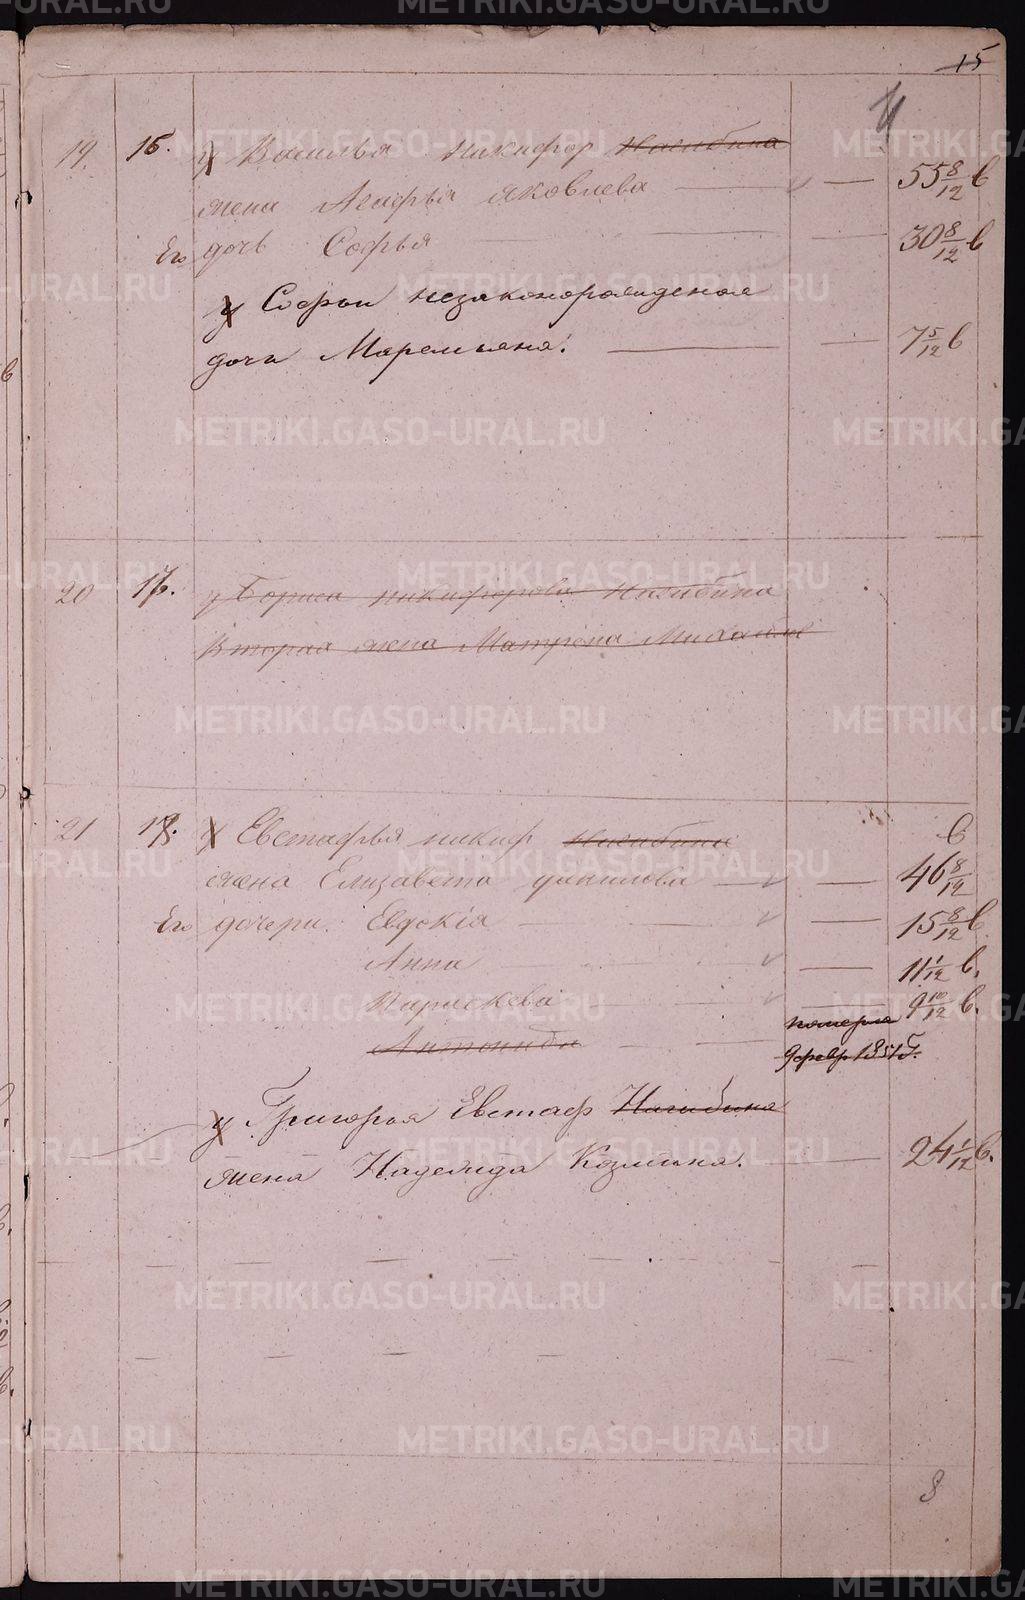 15
4
19. 16. у Василья Никифор Нагибина
жена Агафья Яковлева — — 55 8/12 в
Его дочь Софья — — 30 8/12 в
у Софьи незаконорожденная
дочь Маремьяна. — — 7 5/12 в
20 17. у Бориса Никифорова Нагибина
Вторая жена Матрена Михайлов
21 18. у Евстафья Никиф Нагибина в
жена Елизавета Данилова — — 46 8/12
Его дочери: Евдокія — — 15 8/12 в
Анна — — 11 1/12 в.
Параскева — — 9 10/12 в.
Антонида — померла
9 февр 1851 г.
у Григорья Евстаф Нагибина
жена Надежида Козмина. — 24 1/12 в.
8
METRIKI.GASO-URAL.RU